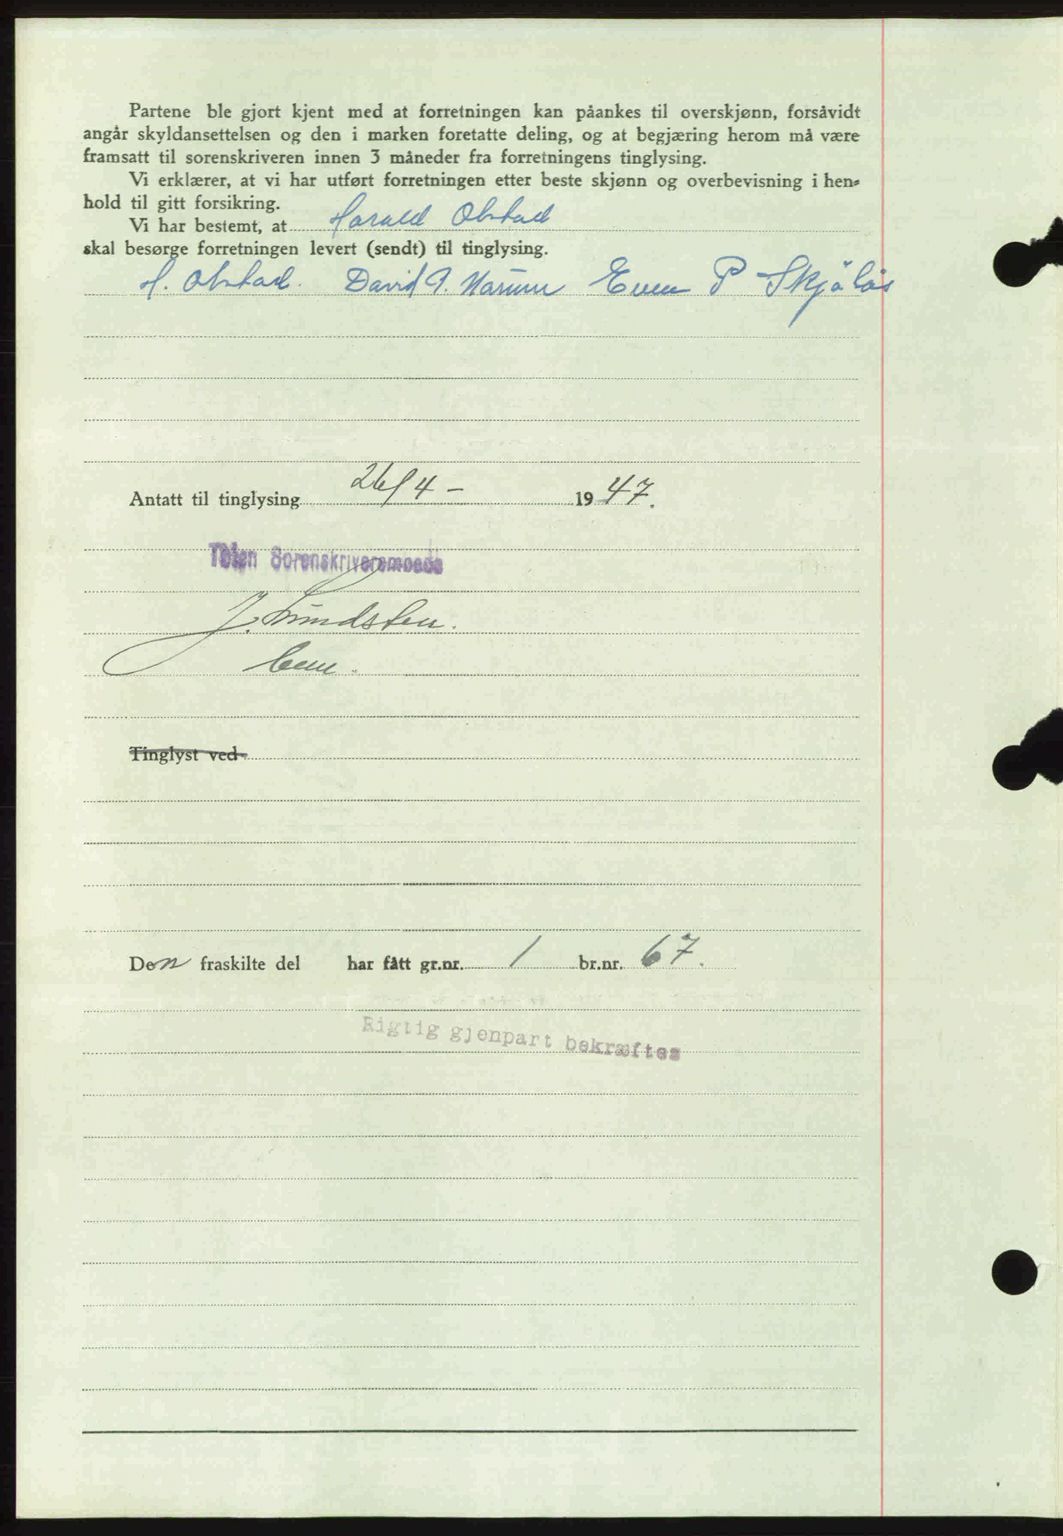 Partene ble gjort kjent med at forretningen kan påankes til overskjønn, forsåvidt
angår skyldansettelsen og den i marken foretatte deling, og at begjæring herom må være
framsatt til sorenskriveren innen 3 måneder fra forretningens tinglysing.
Vi erklærer, at vi har utført forretningen etter beste skjønn og overbevisning i hen-
hold til gitt forsikring.
Vi har bestemt, at Harald Olstad
skal besørge forretningen levert (sendt) til tinglysing.
H. Olstad. David A. Narum Even P Skjølås
Antatt til tinglysing 26/4 - 1947.
Toten Sorenskriverembede
J. Lundsten.
Tinglyst ved
Den fraskilte del har fått gr.nr. 1 br.nr. 67.
Rigtig gjenpart bekræftes